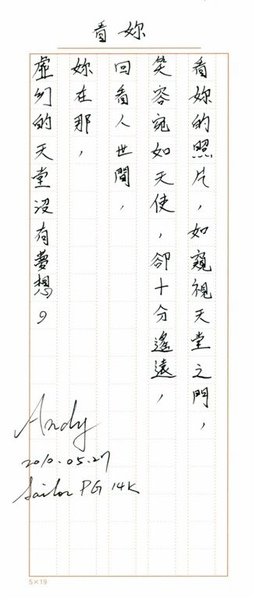 看妳
看妳的照片，如窺視天堂之門，
笑容宛如天使，卻十分遙遠，
回看人世間，
妳在那，
虛幻的天堂沒有夢想。
Andy
2010.05.27
Sailor PG 14K
5×19